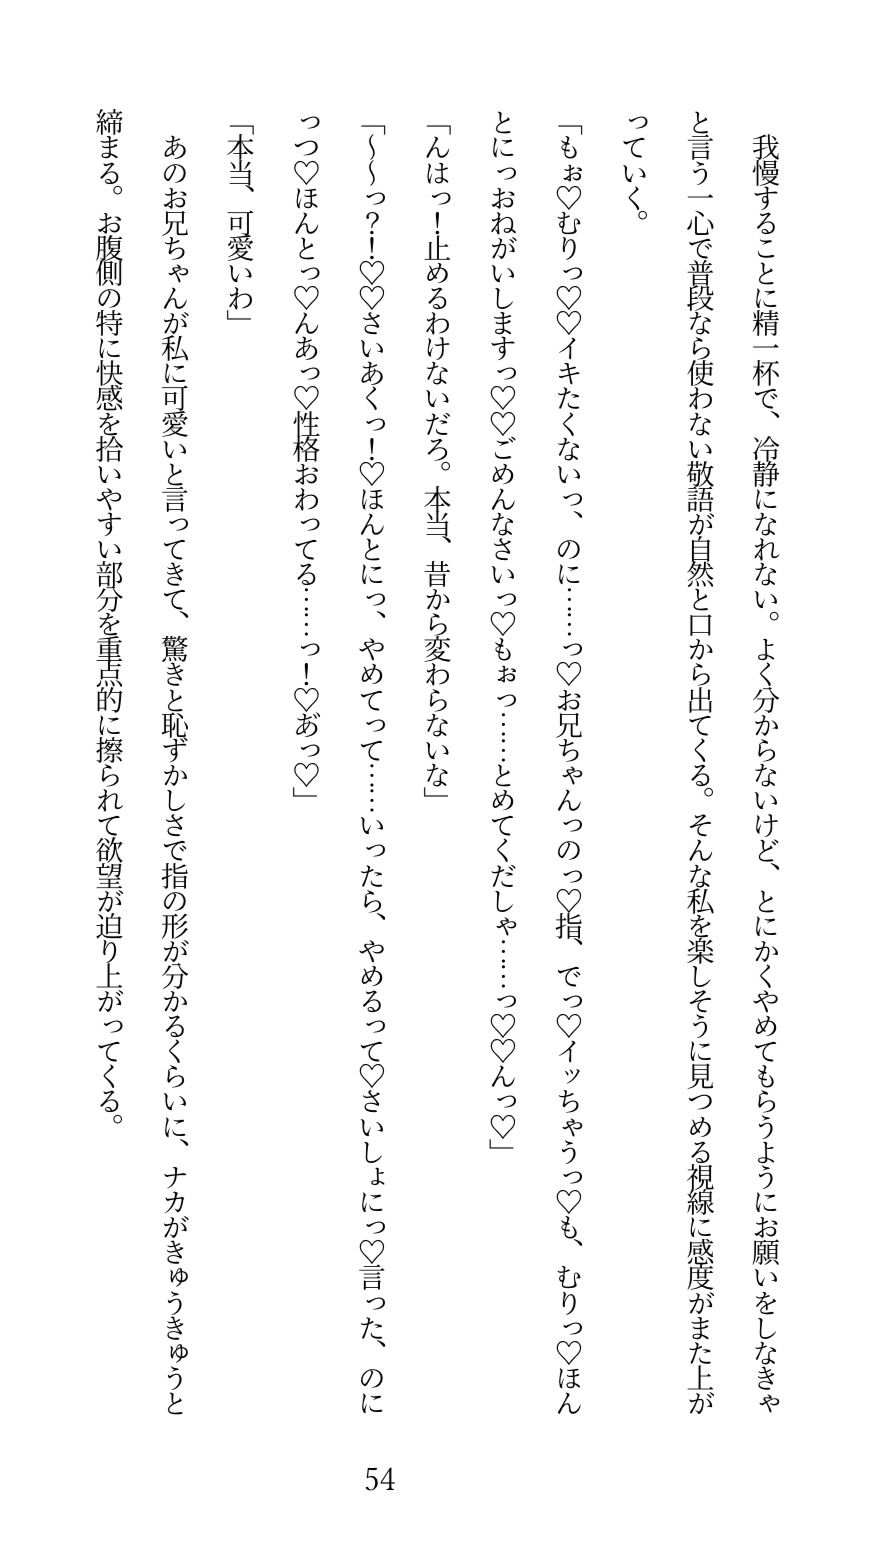 我慢することに精一杯で、冷静になれない。よく分からないけど、とにかくやめてもらうようにお願いをしなきゃ
と言う一心で普段なら使わない敬語が自然と口から出てくる。そんな私を楽しそうに見つめる視線に感度がまた上が
っていく。
「もぉ♡むりっ♡♡イキたくないっ、のに……っ♡お兄ちゃんっのっ♡指、でっ♡イッちゃうっ♡も、むりっ♡ほん
とにっおねがいしますっ♡♡ごめんなさいっ♡もぉっ……とめてくだしゃ……っ♡♡んっ♡」
「んはっ！止めるわけないだろ。本当、昔から変わらないな」
「～～っ？！♡♡さいあくっ！♡ほんとにっ、やめてって……いったら、やめるって♡さいしょにっ♡言った、のに
っつ♡ほんとっ♡んあっ♡性格おわってる……っ！♡あ゙っ♡」
「本当、可愛いわ」
あのお兄ちゃんが私に可愛いと言ってきて、驚きと恥ずかしさで指の形が分かるくらいに、ナカがきゅうきゅうと
締まる。お腹側の特に快感を拾いやすい部分を重点的に擦られて欲望が迫り上がってくる。
54